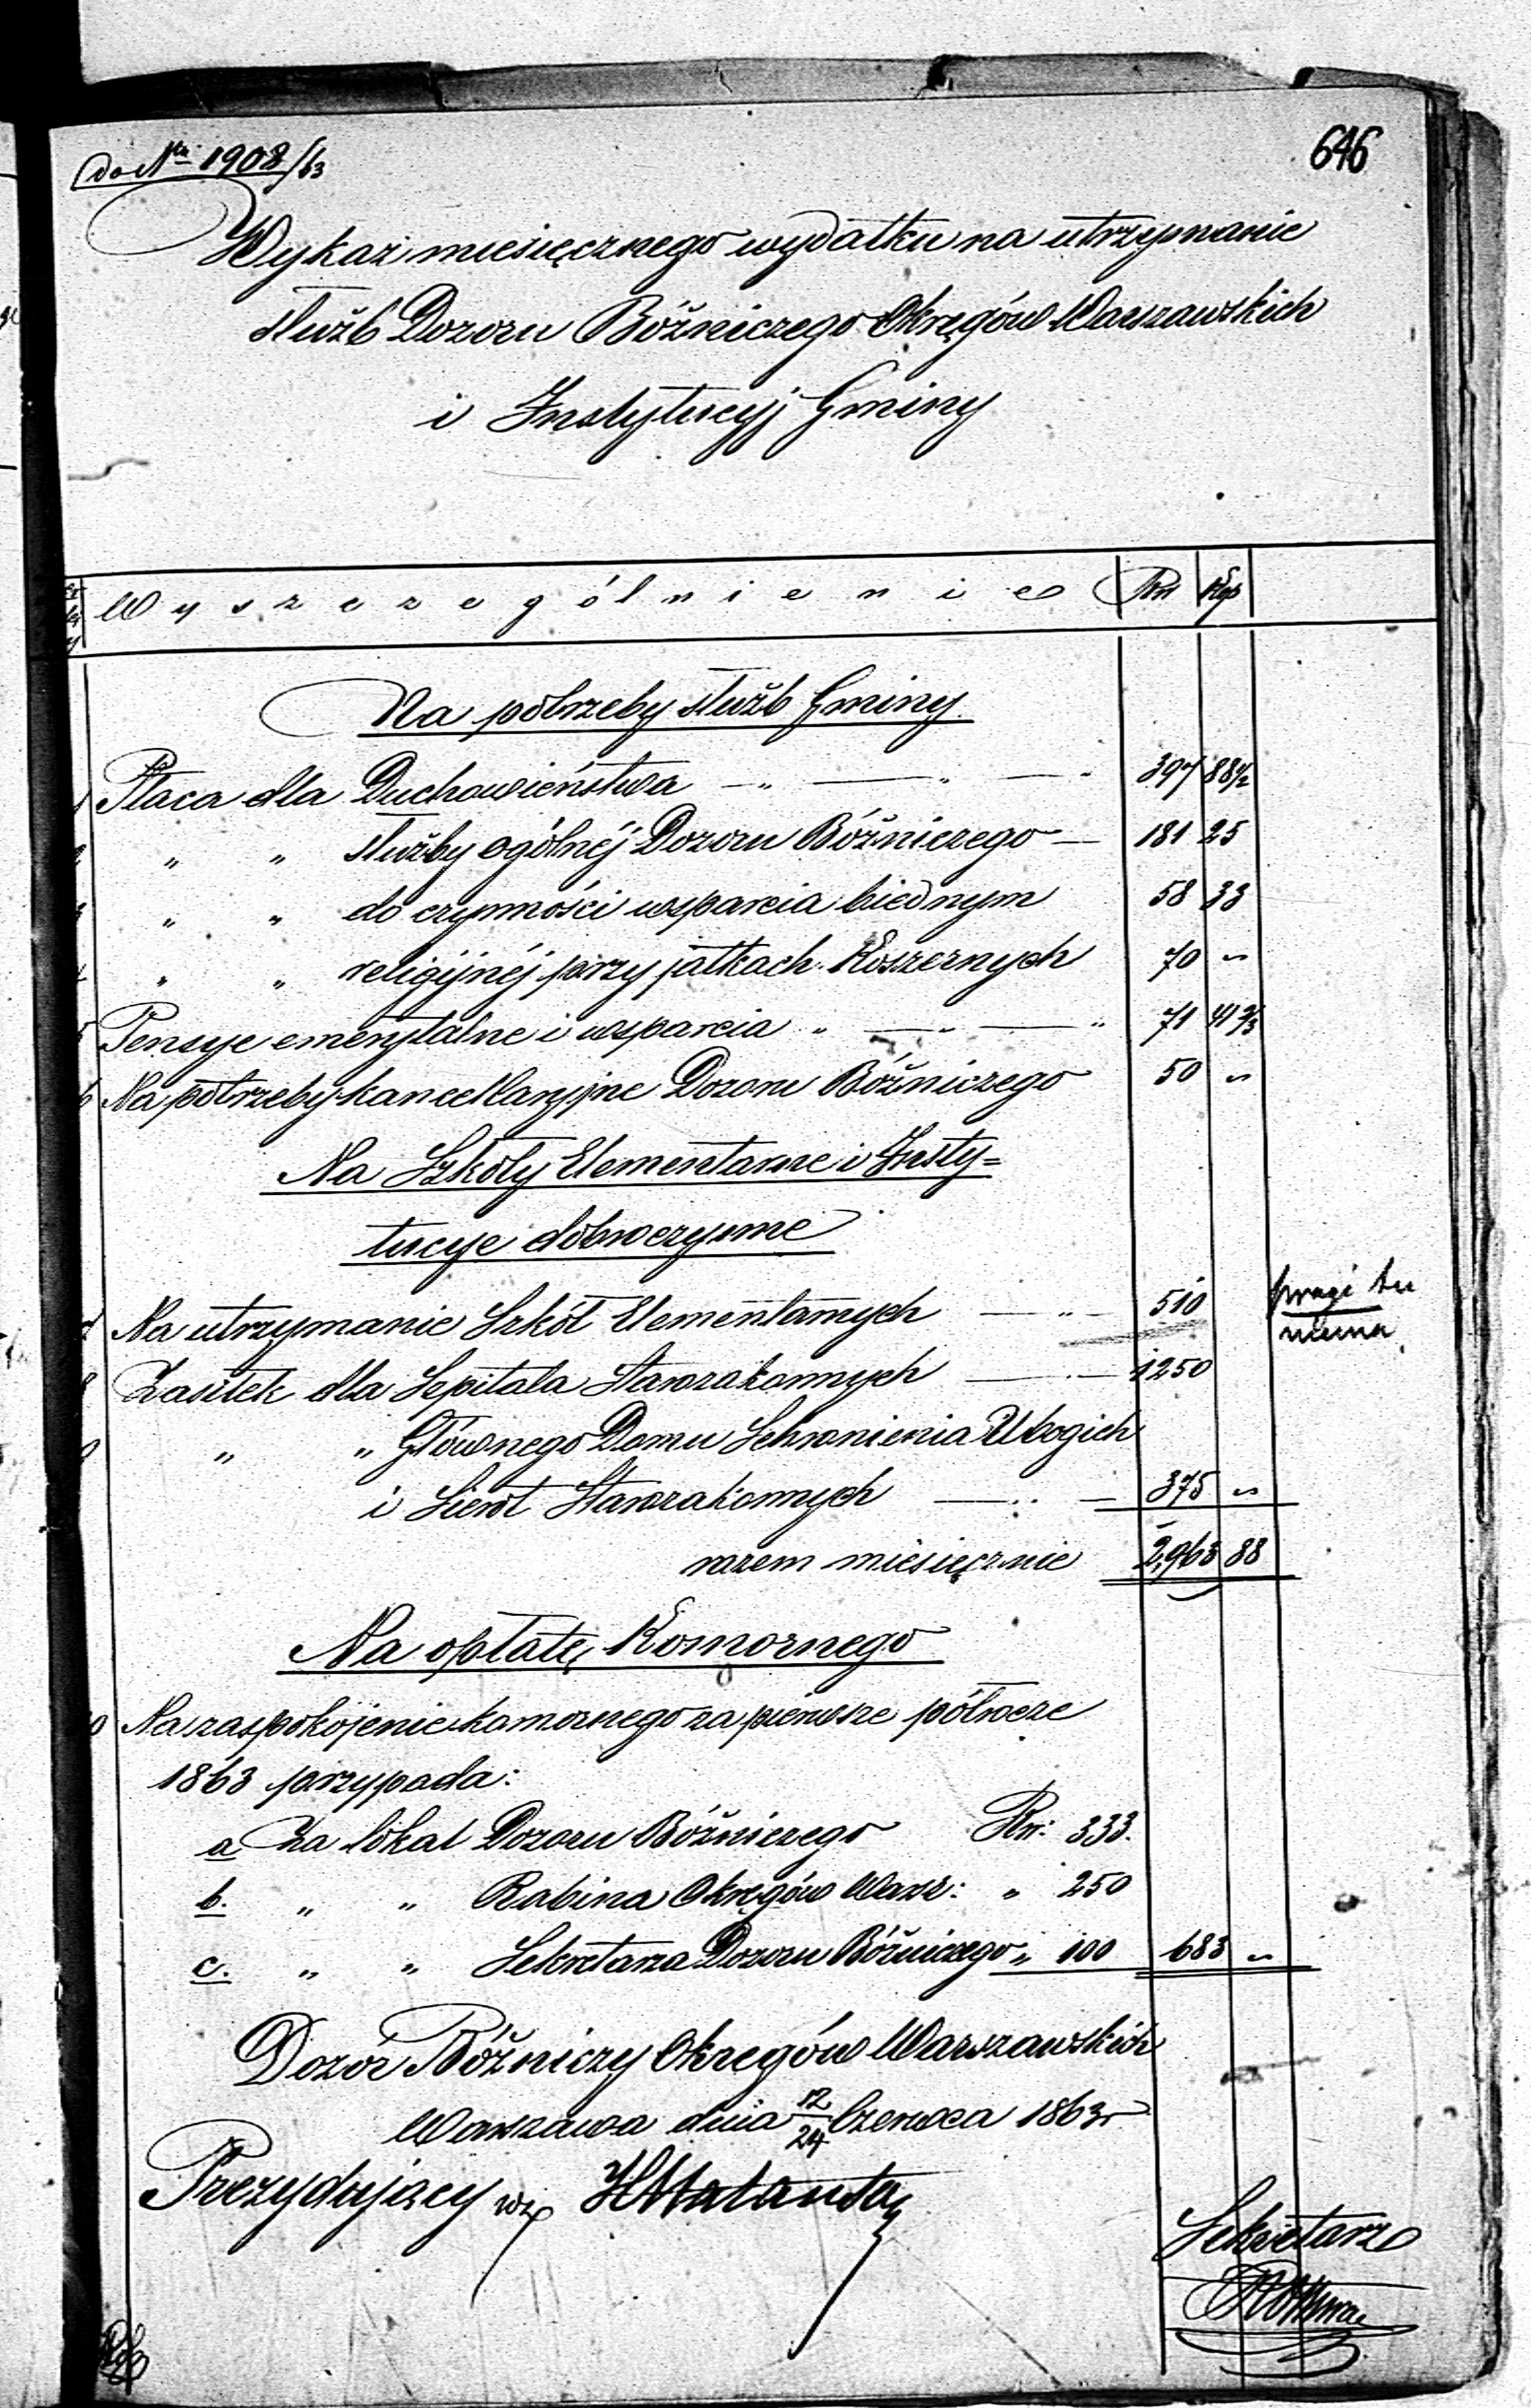 do Nru 1908/63
646
Wykaz miesięcznego wydatku na utrzymanie
służb Dozoru Bóżniczego Okręgów Warszawskich
i Instytucyj Gminy
Wyszczególnienie Rsr Kop
Na potrzeby służb Gminy
1 Płaca dla Duchowieństwa — „ — „ — „ 397 88 1/2
2 „ „ służby ogólnéj Dozoru Bóżniczego — 181 25
3 „ „ do czynności wsparcia biednym 58 33
4 „ „ religijnéj przy jatkach Koszernych 70 „
5 Pensye emerytalne i wsparcia „ — „ — „ 71 41 2/3
6 Na potrzeby kancellaryjne Dozoru Bóżniczego 50 „
Na Szkoły Elementarne i Insty=
tucye dobroczynne
Na utrzymanie Szkół Elementarnych — „ — 510
tu
niema
8 Zasiłek dla Szpitala Starozakonnych — „ — 1250
9 „ „ Głównego Domu Schronienia Ubogich
i Sierot Starozakonnych — „ — 375 „
razem miesięcznie 2,963 88
Na opłatę Komornego
10 Na zaspokojenie komornego za pierwsze półrocze
1863 przypada:
a Za lokal Dozoru Bóżniczego Rsr: 333.
b. „ „ Rabina Okręgów Warsz: „ 250
c. „ „ Sekretarza Dozoru Bóżniczego „ 100 683 „
Dozór Bóżniczy Okręgów Warszawskich
Warszawa dnia 12/24 Czerwca 1863 r
Prezydujący wz
Sekretarz